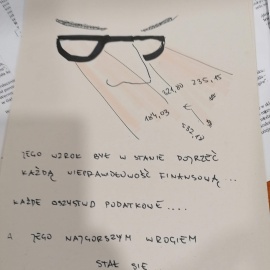 235,15
321,80
184,03
$
$
532,12
JEGO WZROK BYŁ W STANIE DOJRZEĆ
KAŻDĄ NIEPRAWIDŁOWOŚĆ FINANSOWĄ...
KAŻDE OSZUSTWO PODATKOWE....
A JEGO NAJGORSZYM WROGIEM
STAŁ SIĘ